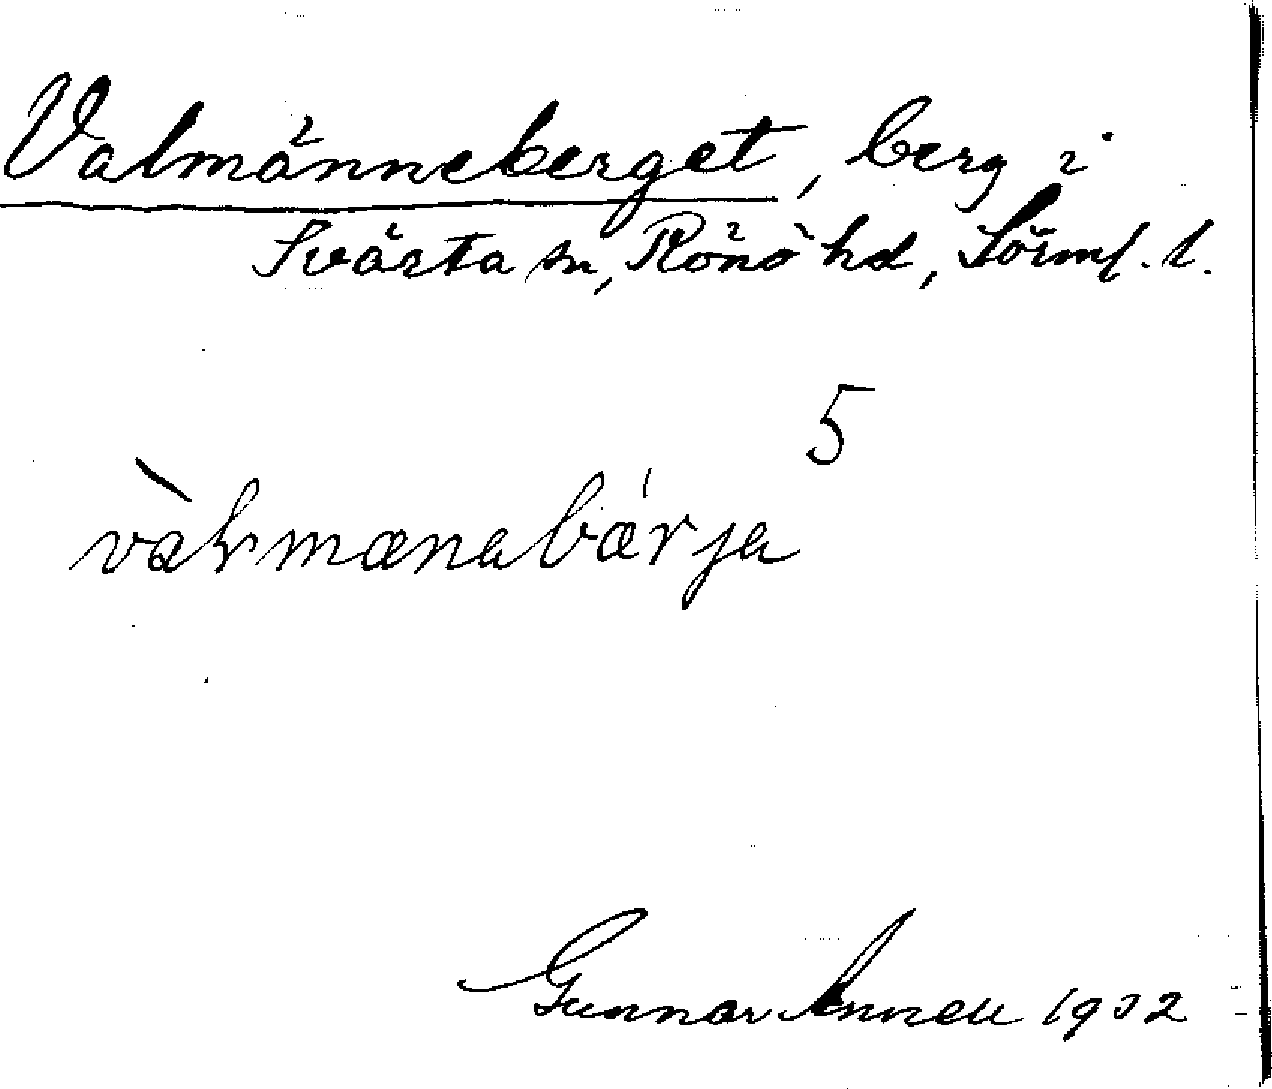 Valmänneberget, berg i
Svärta sn, Rönö hd, Sörml. l.
5
vàlmanabǽrja
Gunnar Annell 1932